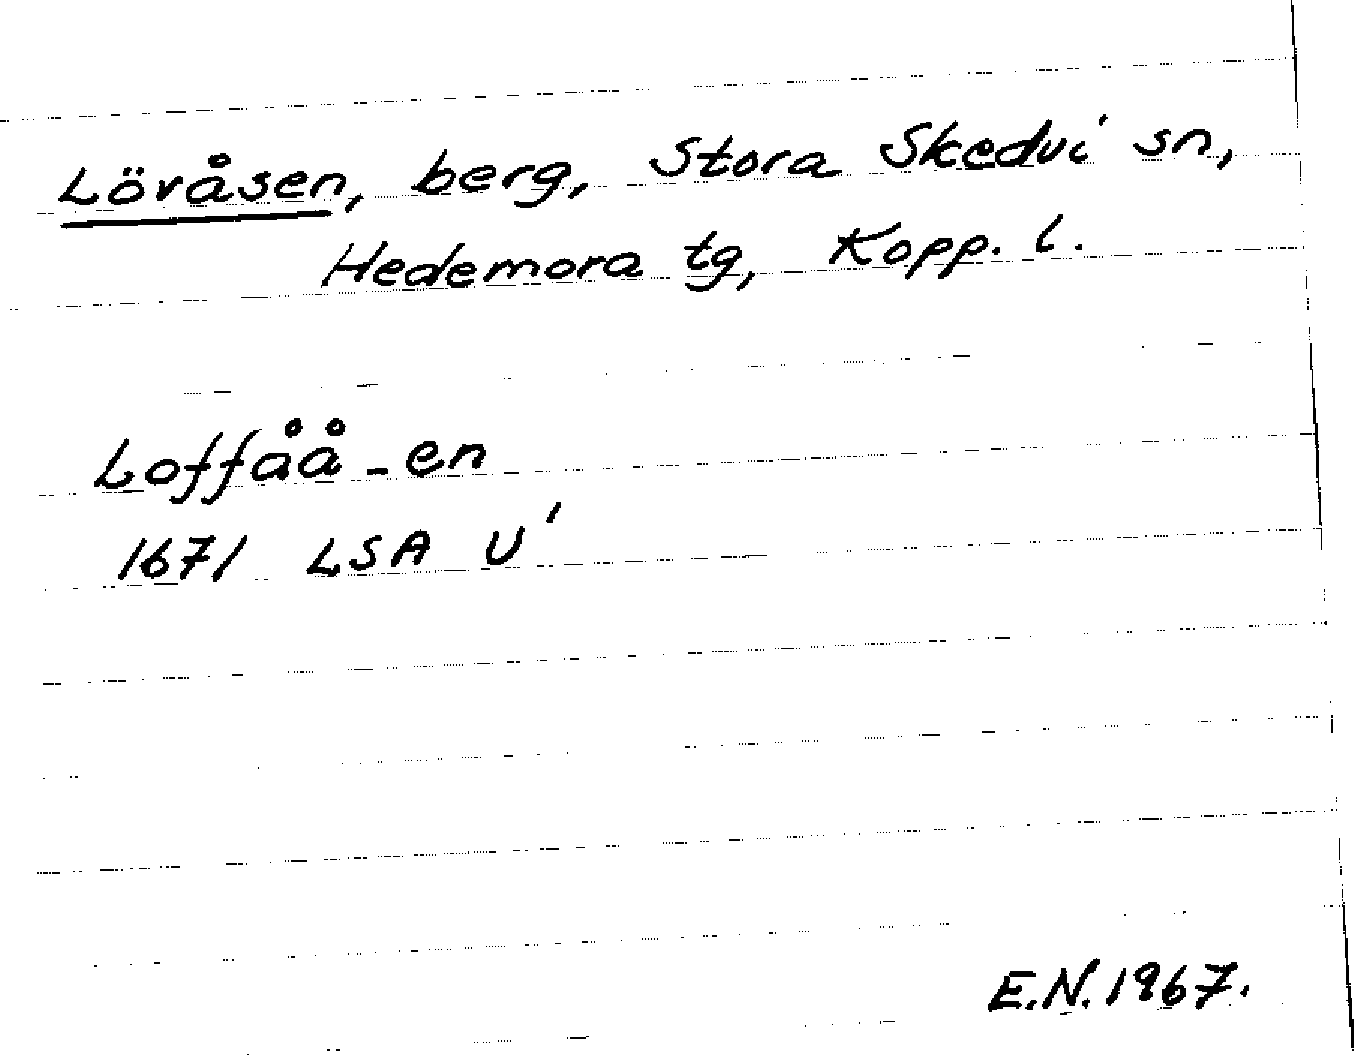 Lövåsen, berg, Stora Skedvi sn,
Hedemora tg, Kopp. l.
Loffåå-en
1671 LSA U'
E.N. 1967.